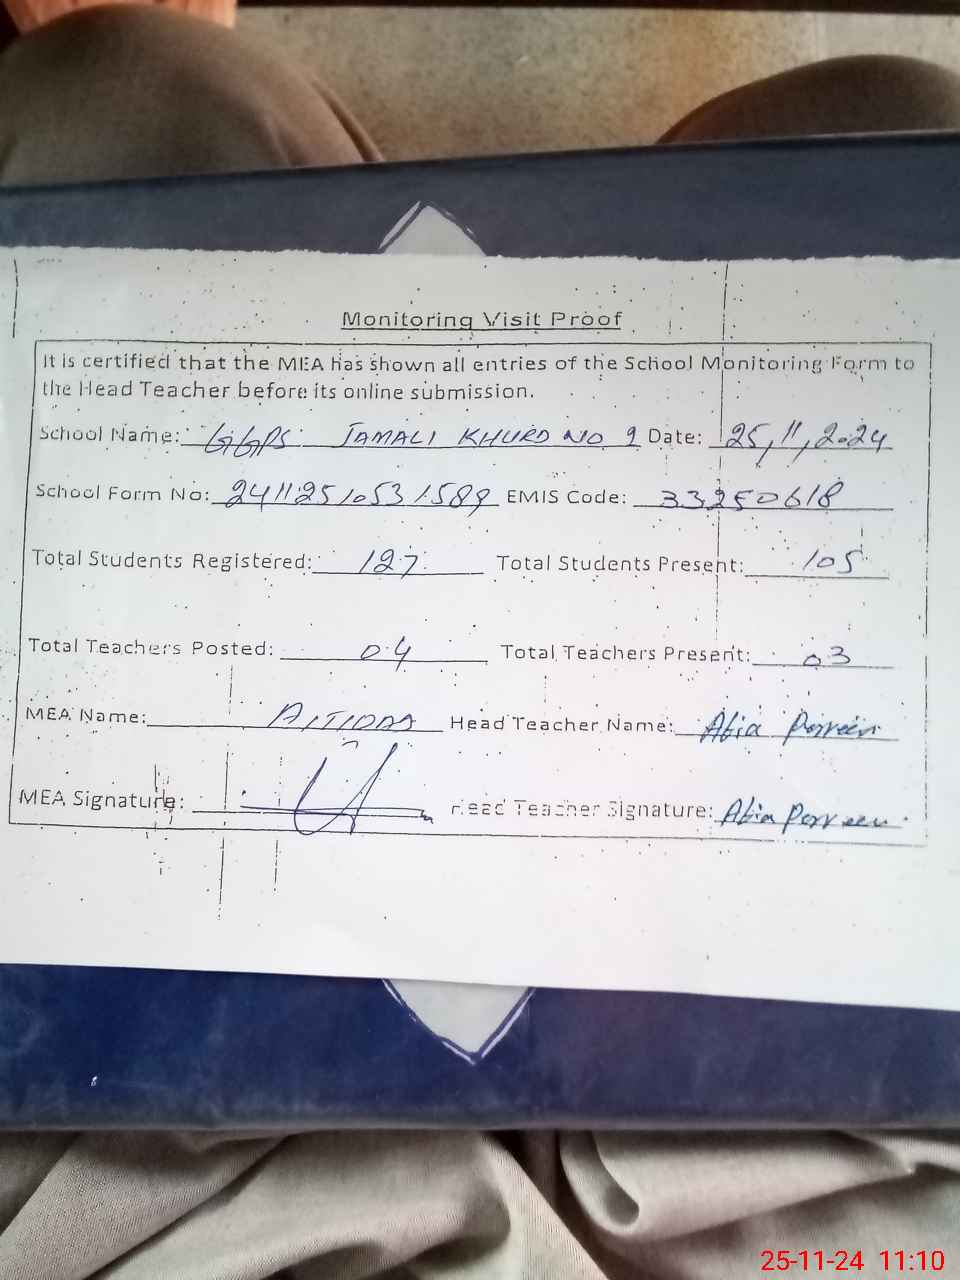 Monitoring Visit Proof
It is certified that the MEA has shown all entries of the School Monitoring Form to
the Head Teacher before its online submission.
School Name: GGPS JAMALI KHURD NO 2 Date: 25,11,2024
School Form No: 24112510531589 EMIS Code: 33250618
Total Students Registered: 127 Total Students Present: 105
Total Teachers Posted: 04 Total Teachers Present: 03
MEA Name: Head Teacher Name: Abia Parveen
MEA Signature: Head Teacher Signature: Abia Parveen
25-11-24 11:10